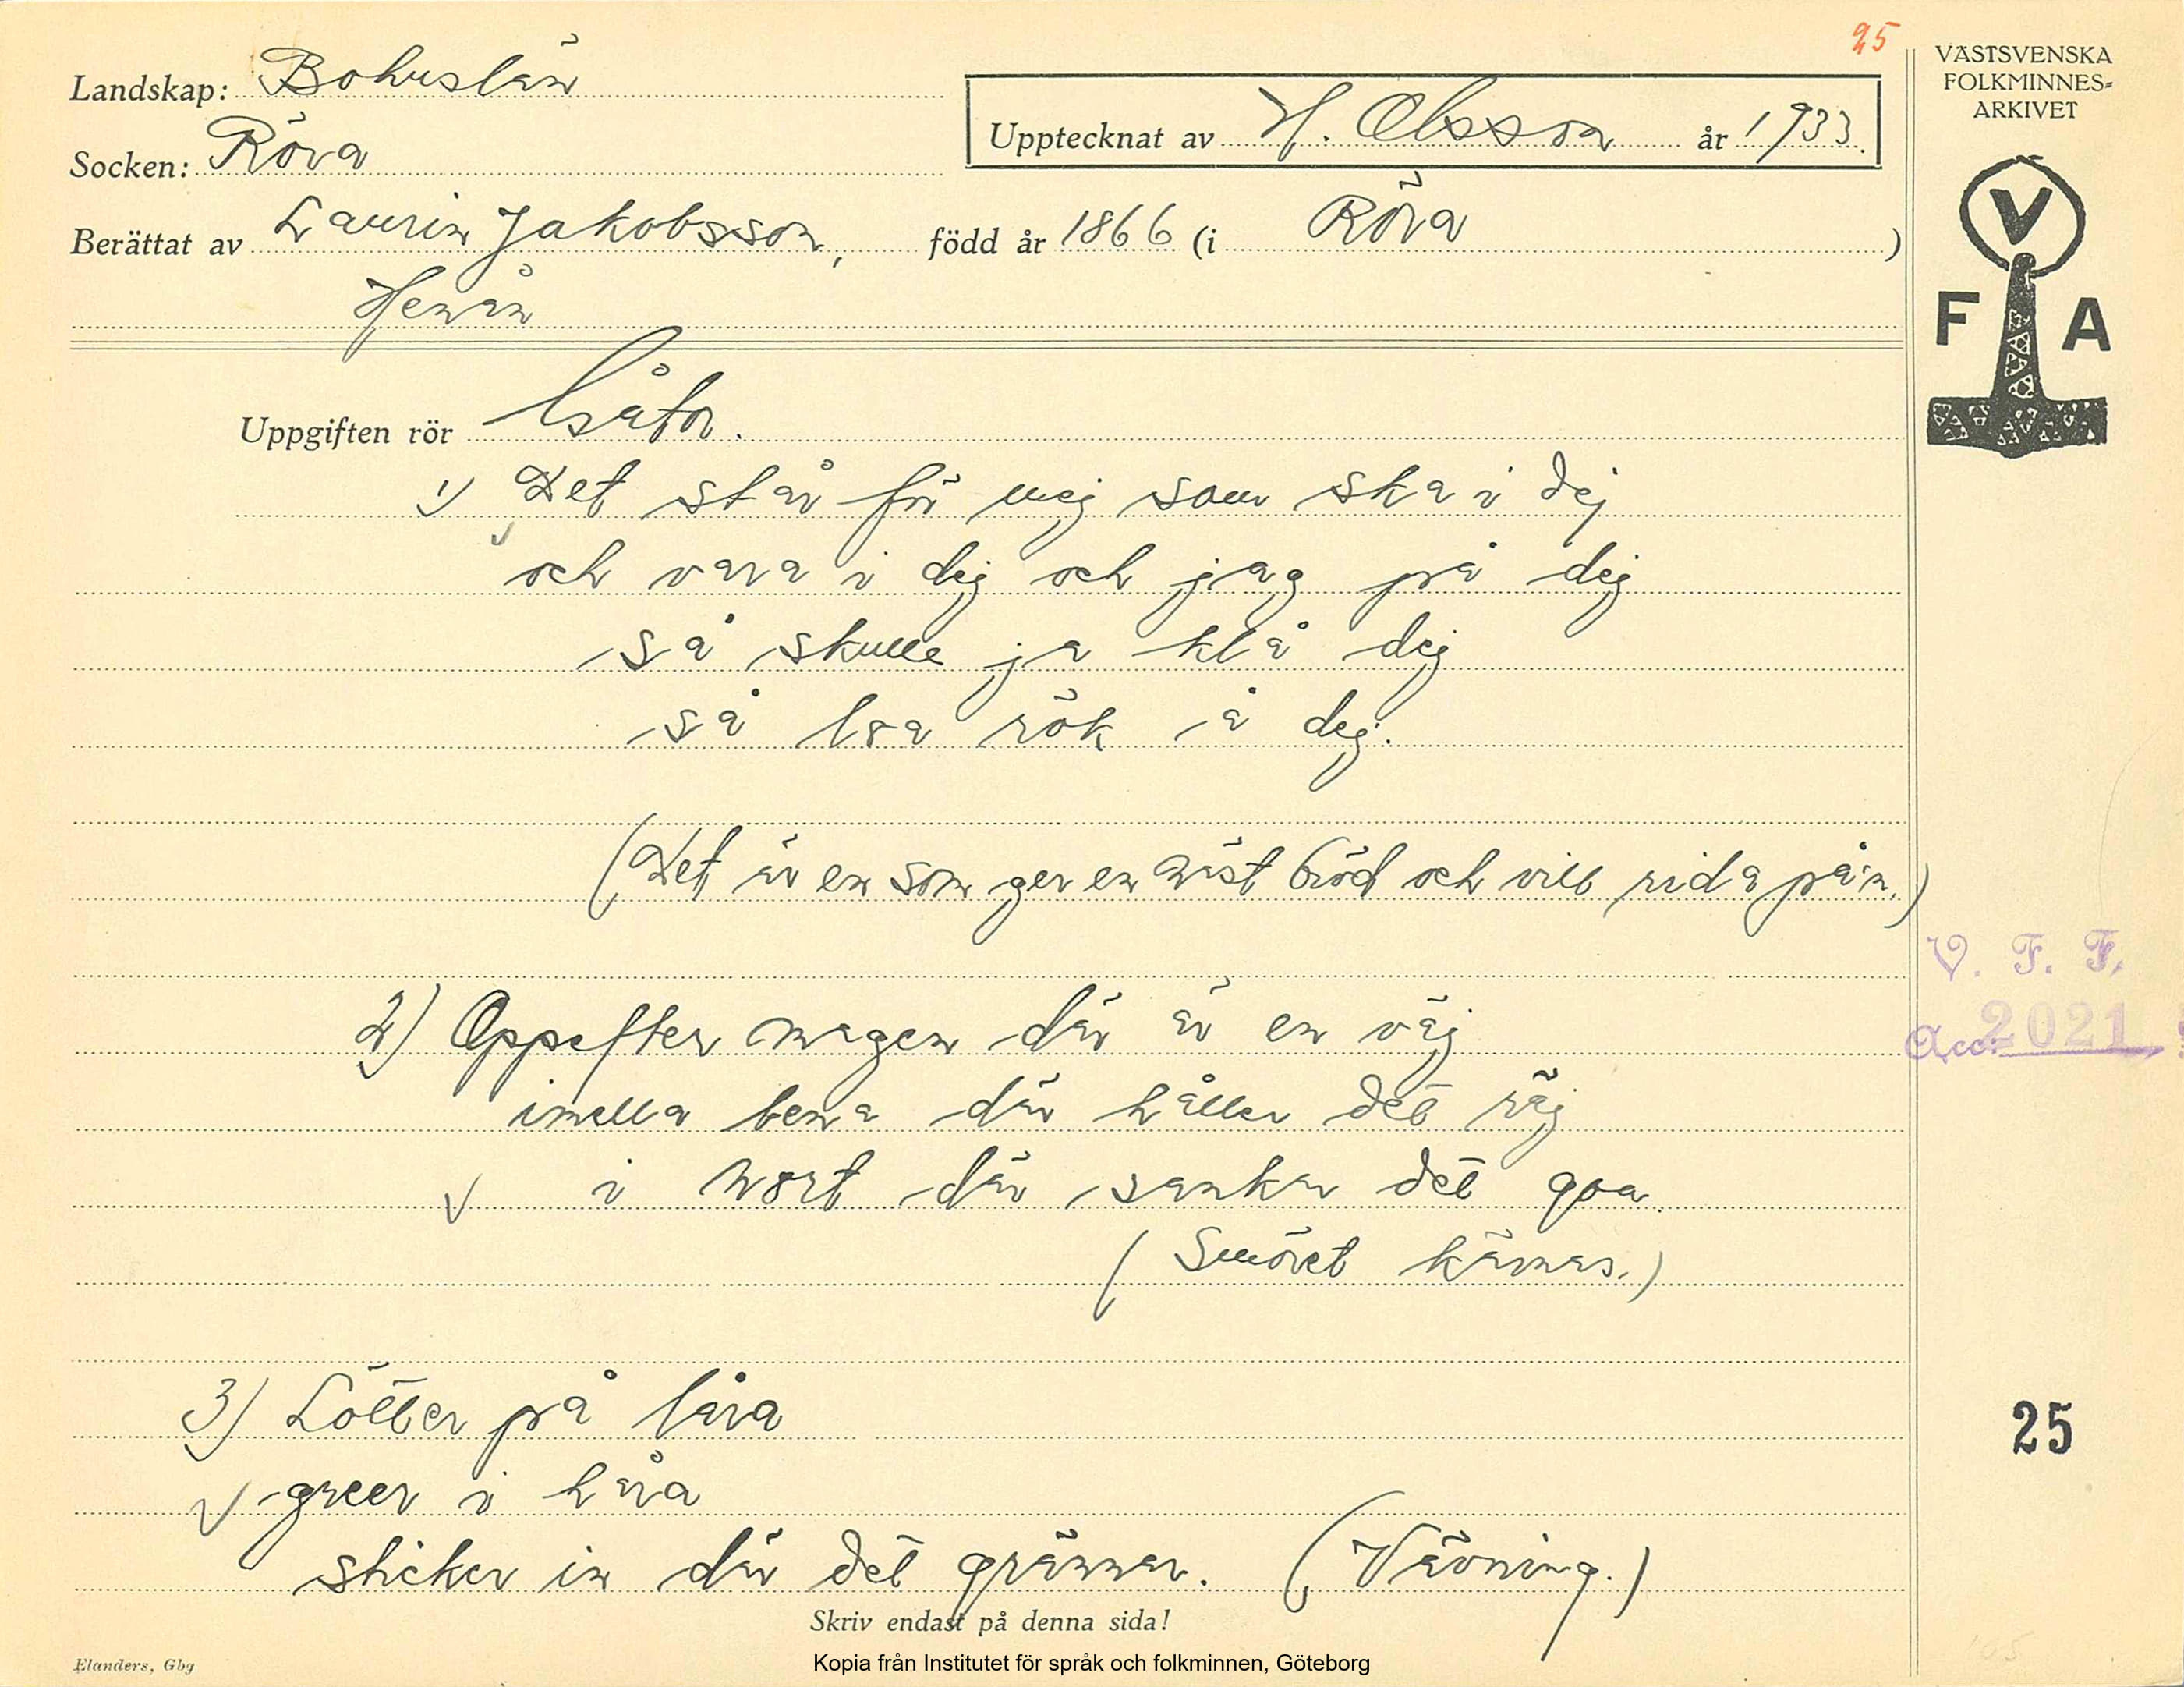 25
VÄSTSVENSKA
FOLKMINNES-
ARKIVET
V
F A
Landskap: Bohuslän
Upptecknat av H. Olsson år 1933.
Socken: Röra
Berättat av Laurin Jakobsson, född år 1866 (i Röra )
Henån
Uppgiften rör Gåtor.
1) Det står för mej som ska i dej
och vara i dig och jag på dig
så skulle ja klå dig
så loa rök å dej.
(Det är en som ger en häst bröd och vill rida på'n.)
V. F. F.
Acc. 2021
2) Oppefter magen där är en väj
imella bena där håller det räj
i hort där sanka det goa.
(Smöret kärnas.)
3) Lötter på låra
greer i håra
sticker in där det grännar. (Vävning.)
25
Skriv endast på denna sida!
Elanders, Gbg
Kopia från Institutet för språk och folkminnen, Göteborg